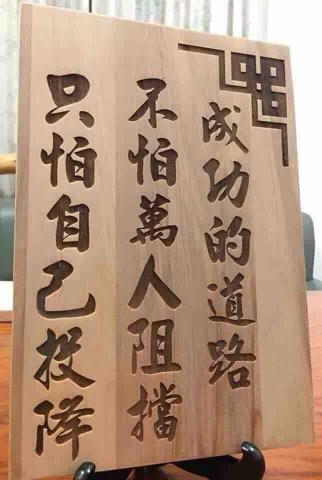 成功的道路
不怕萬人阻擋
只怕自己投降